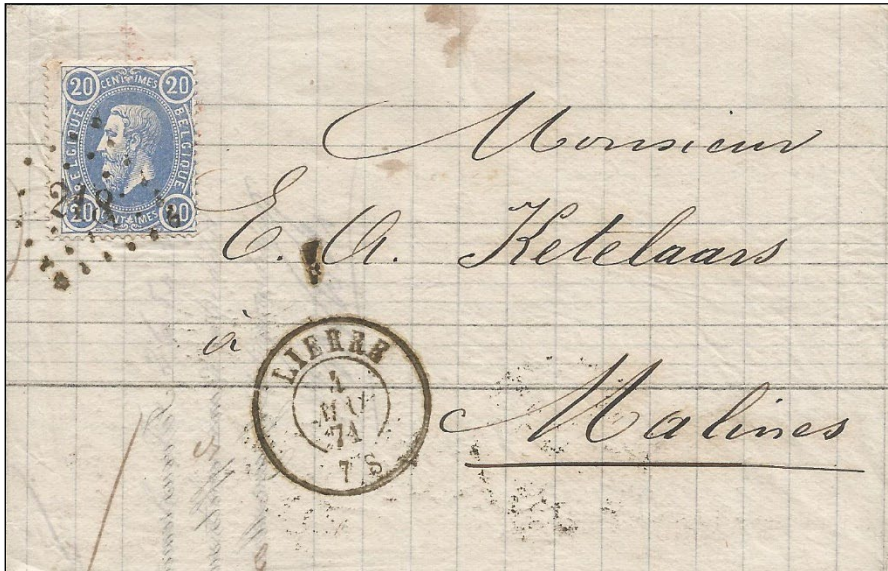 20 CENTIMES 20
BELGIQUE BELGIQUE
20 CENTIMES 20
218
Monsieur
E. A. Ketelaars
à
Malines
LIERRE
4
MAI
71
7 S